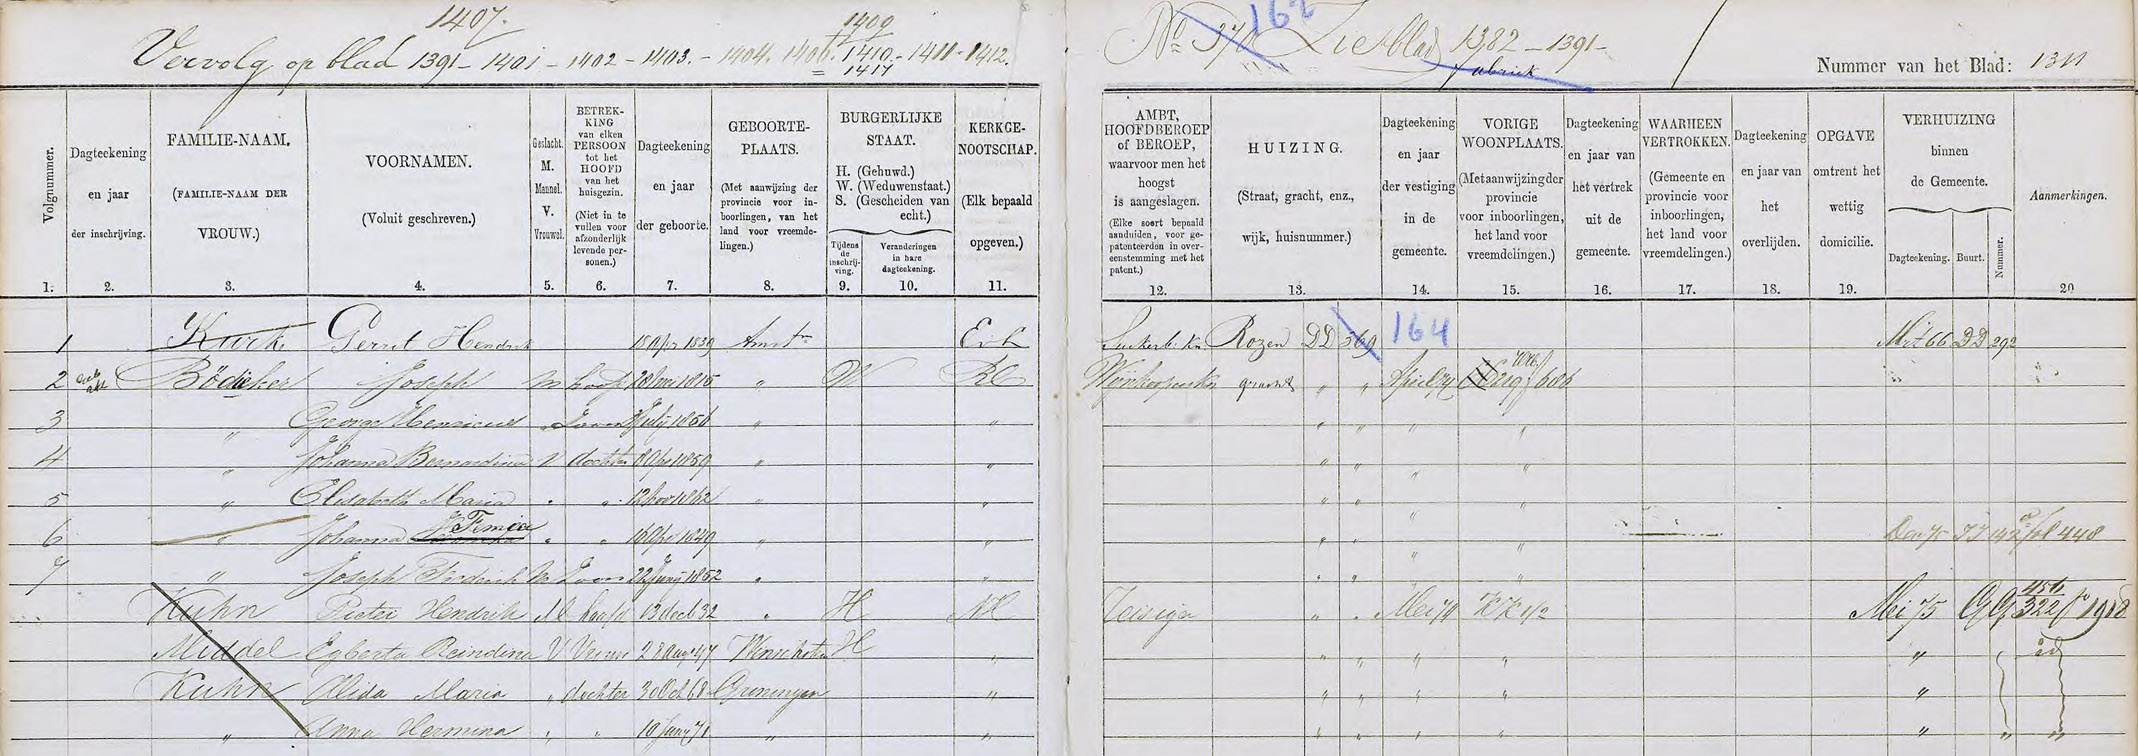 1407.
Vervolg op blad 1391 - 1401 - 1402 - 1403. - 1404. 1406. 1409 1410. - 1411 - 1412.
1417
No 370 162 Zie blad 1382 - 1391 -
Nummer van het Blad: 1311
Volgnummer.
Dagteekening en jaar der inschrijving.
FAMILIE-NAAM. (FAMILIE-NAAM DER VROUW.)
VOORNAMEN. (Voluit geschreven.)
Geslacht. M. Mannel. V. Vrouwel.
BETREKKING van elken PERSOON tot het HOOFD van het huisgezin. (Niet in te vullen voor afzonderlijk levende personen.)
Dagteekening en jaar der geboorte.
GEBOORTE-PLAATS. (Met aanwijzing der provincie voor inboorlingen, van het land voor vreemdelingen.)
BURGERLIJKE STAAT. H. (Gehuwd.) W. (Weduwenstaat.) S. (Gescheiden van echt.)
Tijdens de inschrijving.
Veranderingen in hare dagteekening.
KERKGENOOTSCHAP. (Elk bepaald opgeven.)
AMBT, HOOFDBEROEP of BEROEP, waarvoor men het hoogst is aangeslagen. (Elke soort bepaald aanduiden, voor gepatenteerden in overeenstemming met het patent.)
HUIZING. (Straat, gracht, enz., wijk, huisnummer.)
Dagteekening en jaar der vestiging in de gemeente.
VORIGE WOONPLAATS. (Met aanwijzing der provincie voor inboorlingen, het land voor vreemdelingen.)
Dagteekening en jaar van het vertrek uit de gemeente.
WAARHEEN VERTROKKEN. (Gemeente en provincie voor inboorlingen, het land voor vreemdelingen.)
Dagteekening en jaar van het overlijden.
OPGAVE omtrent het wettig domicilie.
VERHUIZING binnen de Gemeente.
Dagteekening. Buurt. Nummer.
Aanmerkingen.
1. 2. 3. 4. 5. 6. 7. 8. 9. 10. 11. 12. 13. 14. 15. 16. 17. 18. 19. 20
1 Gerrit Hendrik 18 Apr 1839 Amstm Rozen DD 369 164 Mrt 66 DD 292
2 Bödicker Joseph M hoofd 1815 " W RC gracht " " April 71 686
3 " George Henricus " Zoon July 1856 " "
4 " Johanna Bernardina V dochter 8 Apr 1859 " "
5 " Elisabeth Maria " " 12 Nov 1862 " "
6 " Johanna Femia " " 16 Apr 1849 " " Dec 75 448
7 " Joseph Fredrik M Zoon 22 Juny 1852 " "
Kuhn Pieter Hendrik M hoofd 13 Dec 32 " H NH " " Mei 71 KK 1/2 Mei 75 GG 322 1918
Middel Egberta Reindina V Vrouw 28 Aug 47 Winschoten H " "
Kuhn Alida Maria " dochter 30 Oct 68 Groningen " "
" Anna Hermina " " 10 Jany 71 " " "